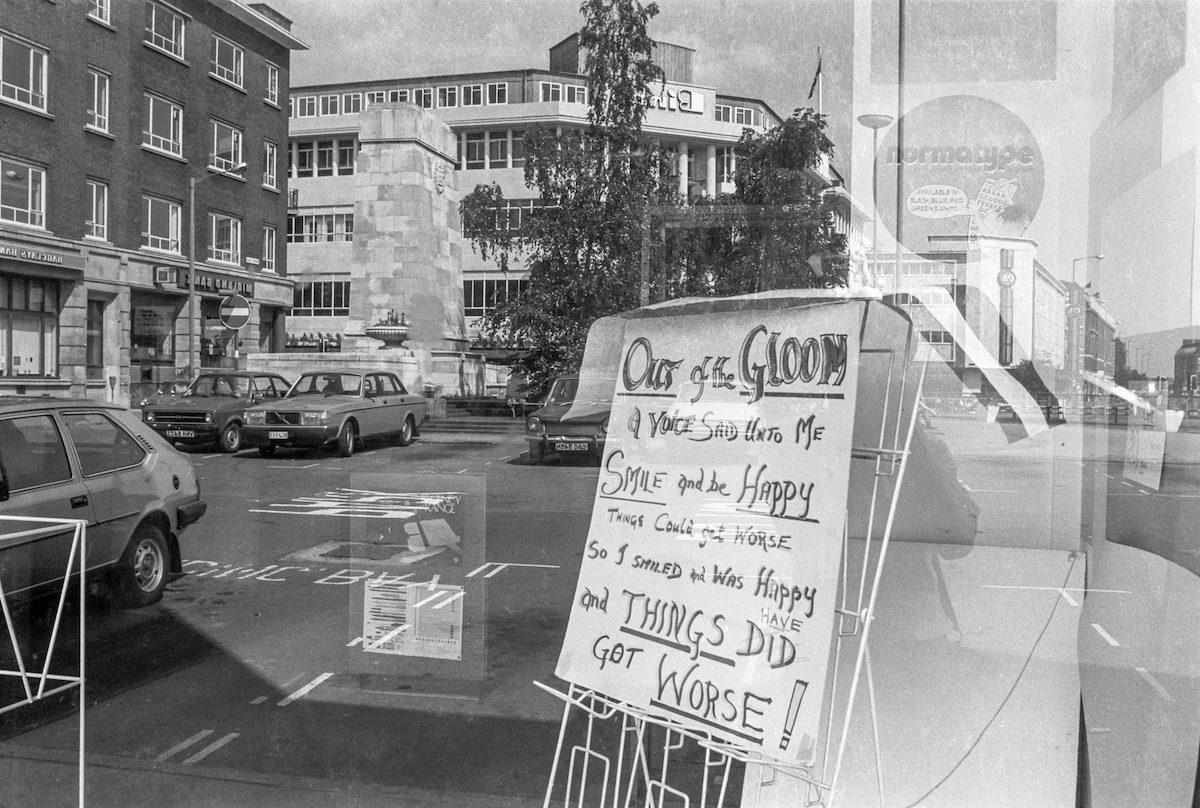 Bi
BARCLAYS BAN
MIDLAND BANK
normatype
AVAILABLE IN
BLACK, BLUE, RED
GREEN & WHITE
OUT of the GLOOM
A VOICE SAID UNTO ME
SMILE and be HAPPY
THINGS Could get WORSE
So I SMILED and WAS HAPPY
and THINGS DID
HAVE
GOT WORSE!